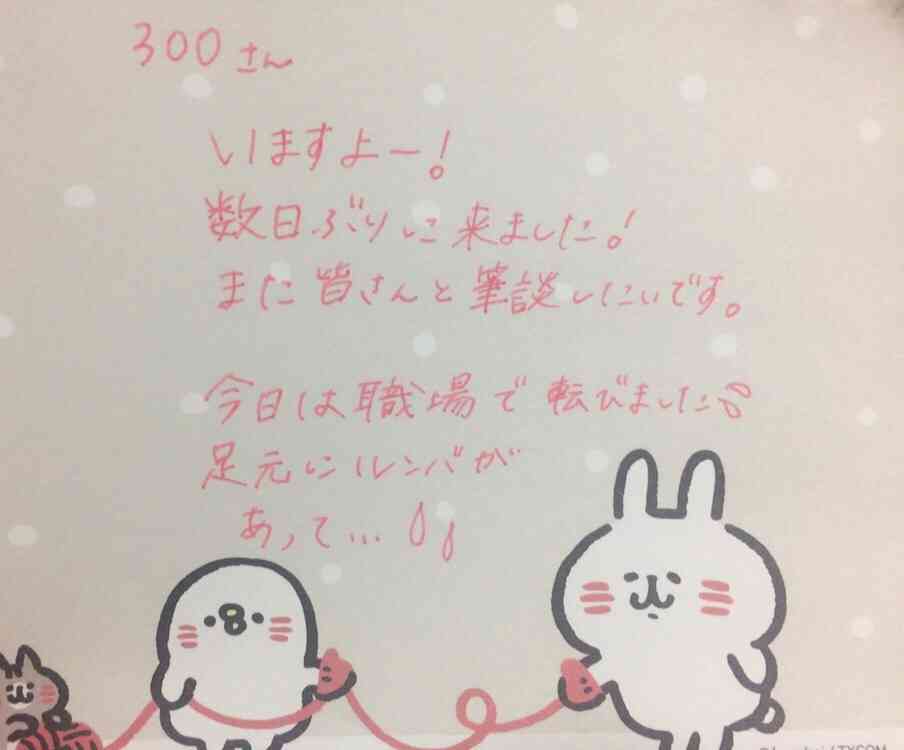 300さん
いますよー!
数日ぶりに来ました!
また皆さんと筆談したいです。
今日は職場で転びました
足元にルンバが
あって...